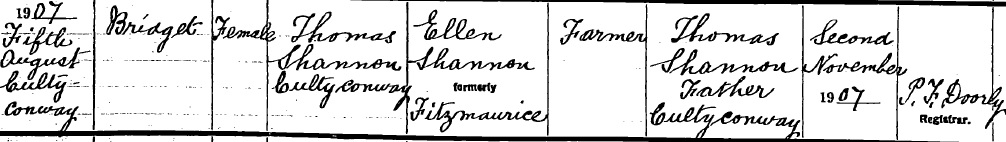 1907
Fifth
August
Culty
conway
Bridget
Female
Thomas
Shannon
Culty conway
Ellen
Shannon
formerly
Fitzmaurice
Farmer
Thomas
Shannon
Father
Cultyconway
Second
November
1907
P. F. Doorly
Registrar.